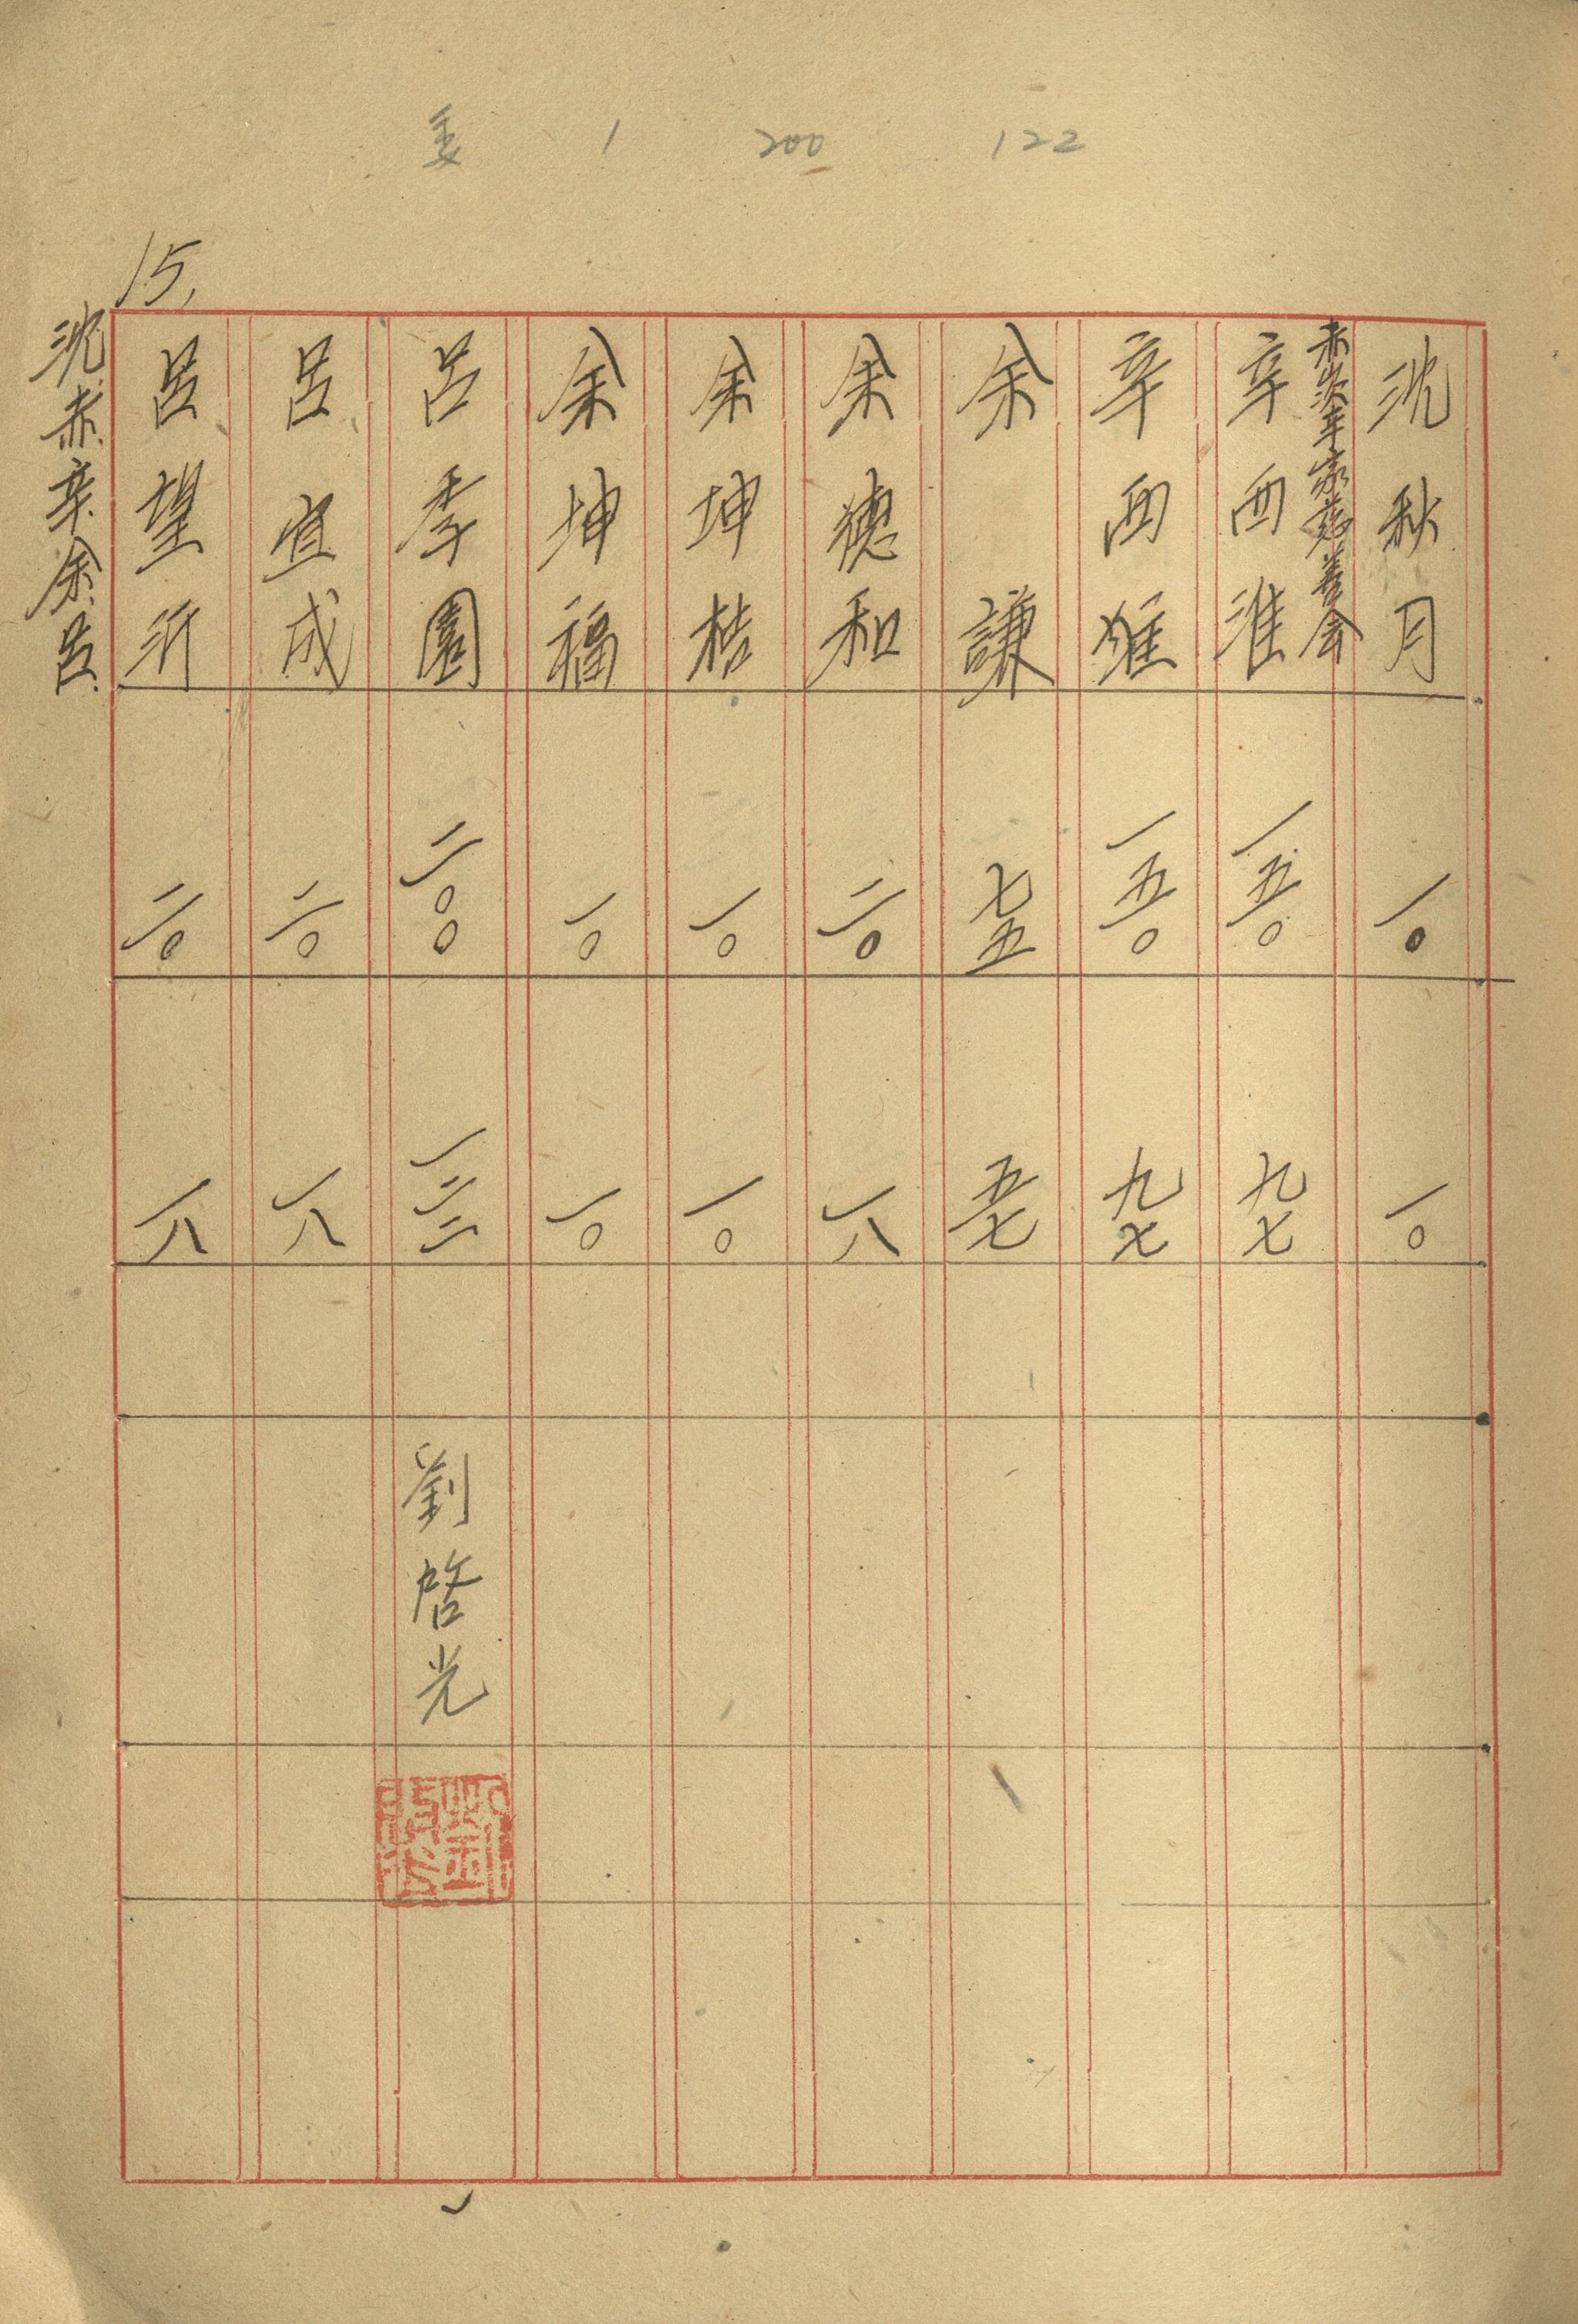 委 1 200 122
15.
沈秋月 一〇 一〇
赤崁辛家慈善会
辛西淮 一五〇 九七
辛西雄 一五〇 九七
余謙 七五 五七
余德和 二〇 一八
余坤桔 一〇 一〇
余坤福 一〇 一〇
呂季園 二〇〇 一二二 劉啓光
呂宜成 二〇 一八
呂望沂 二〇 一八
沈.赤.辛.余.呂.